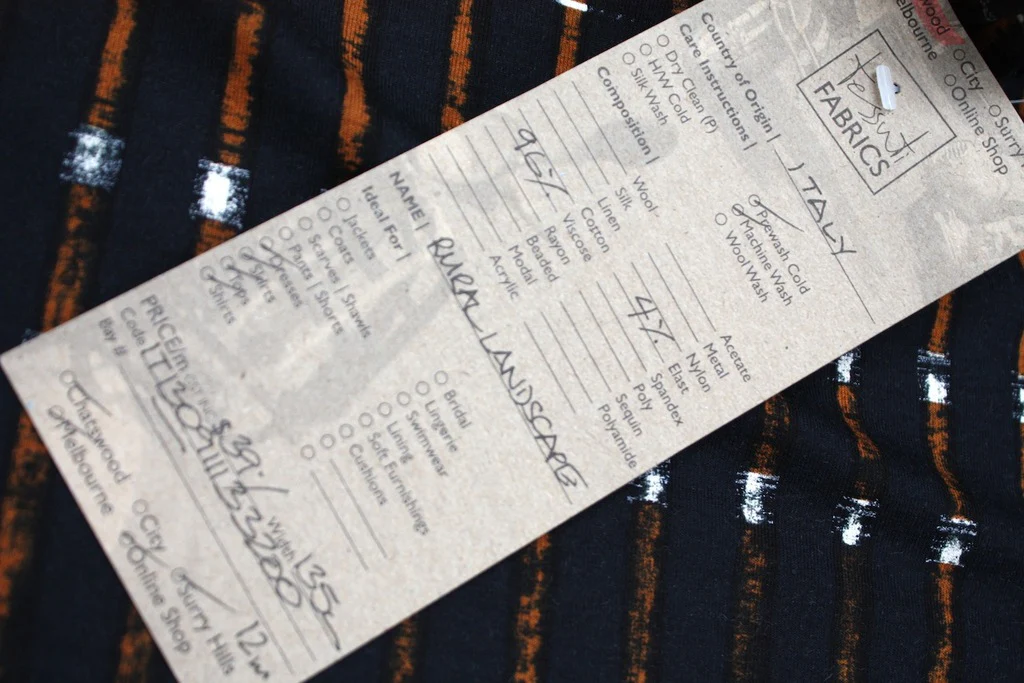 wood
elbourne
City
Online Shop
Surry
Tessuti
FABRICS
Country of Origin | ITALY
Care Instructions |
Dry Clean (P)
H/W Cold
Silk Wash
Prewash Cold
Machine Wash
Wool Wash
Composition |
Wool
Silk
Linen
Cotton
96% Viscose
Rayon
Beaded
Modal
Acrylic
Acetate
Metal
Nylon
4% Elast
Spandex
Poly
Sequin
Polyamide
NAME | RURAL LANDSCAPE
Ideal For |
Jackets
Coats
Scarves | Shawls
Pants | Shorts
Dresses
Skirts
Tops
Shirts
Bridal
Lingerie
Swimwear
Lining
Soft Furnishings
Cushions
PRICE/m $39.- Width 135c
Code
Bay # 12m
Chatswood
Melbourne
City
Online Shop
Surry Hills